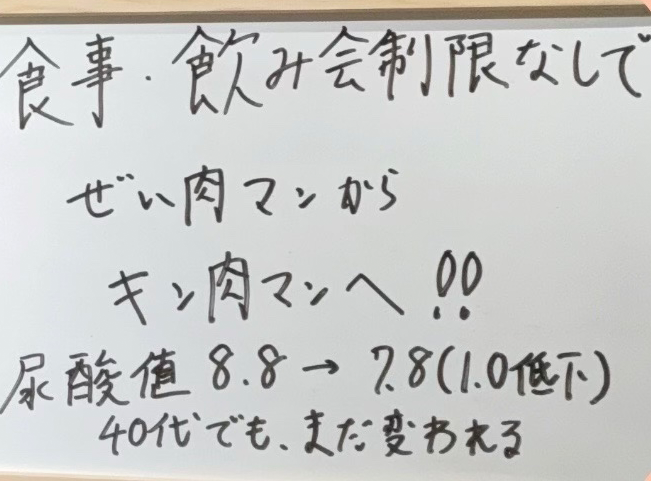 食事・飲み会制限なしで
ぜい肉マンから
キン肉マンへ!!
尿酸値 8.8→7.8(1.0低下)
40代でも、まだ変われる